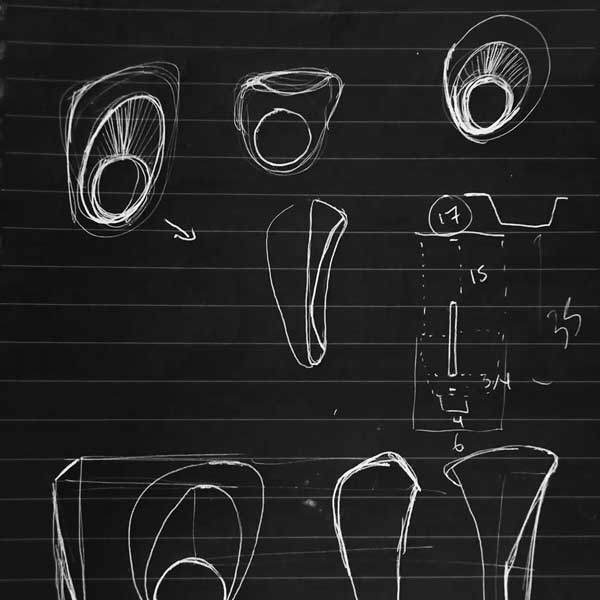 17
15
35
3/4
4
6